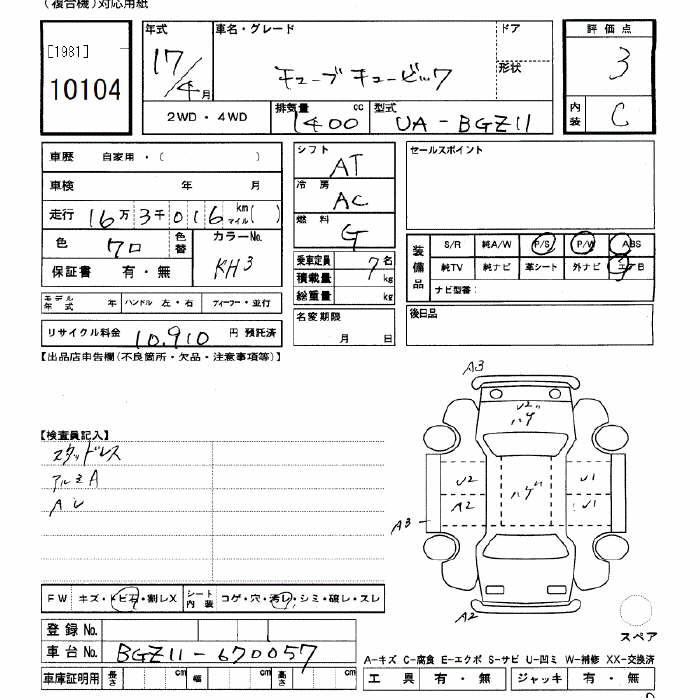 (複合機)対応用紙
[1981]
10104
年式
17/4月
車名・グレード
キューブキュービック
ドア
形状
評価点
3
内装
C
2WD・4WD
排気量 cc
1400
型式
UA-BGZ11
車歴 自家用・( )
車検 年 月
走行 16万3千016 km マイル( )
色 クロ 色替
カラーNo.
KH3
保証書 有・無
モデル年式 年 ハンドル 左・右 ディーラー・並行
リサイクル料金 10,910 円 預託済
シフト
AT
冷房
AC
燃料
G
乗車定員 7名
積載量 kg
総重量 kg
名変期限
月 日
セールスポイント
装備品
S/R 純A/W P/S P/W ABS
純TV 純ナビ 革シート 外ナビ エアB
ナビ型番:
後日品
【出品店申告欄(不良箇所・欠品・注意事項等)】
【検査員記入】
スタッドレス
アルミA
A3
U2
ハゲ
U2 ハゲ U1
A2 U1
A3
A2
スペア
FW キズ・トビ石・割レX シート内装 コゲ・穴・汚レ・シミ・破レ・スレ
登録No.
車台No. BGZ11-670057
車庫証明用 長さ cm 幅 cm 高さ cm
A-キズ C-腐食 E-エクボ S-サビ U-凹ミ W-補修 XX-交換済
工具 有・無 ジャッキ 有・無